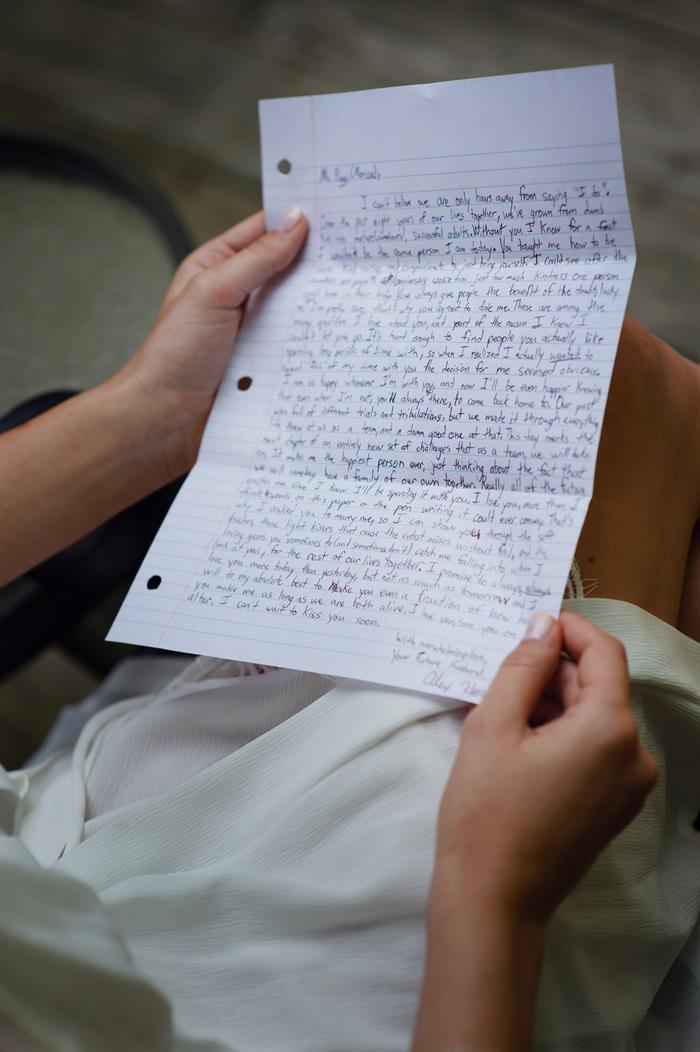 I can't believe we are only hours away from saying "I do".
Over the past eight years of our lives together, we've grown from dumb
kids into successful adults. Without you I know for a fact
I wouldn't be the same person I am today. You taught me how to be
caring and compassionate to just being yourself. I could see after the
anniversary just how much kindness one person
could have in their body. You always give people the benefit of the doubt, lucky
me I'm pretty sure that's why you agreed to date me. These are among the
many qualities I love about you, and part of the reason I knew I
couldn't let you go. It's hard enough to find people you actually like
spending long periods of time with, so when I realized I actually wanted to
spend all of my time with you the decision for me seemed obvious.
I am so happy whenever I'm with you, and now I'll be even happier knowing
that even when I'm not, you'll always there, to come back home to. Our past
was full of different trials and tribulations, but we made it through everything
life threw at us as a team, and a damn good one at that. This day marks the
next chapter of an entirely new set of challenges that as a team, we will take
on. It makes me the happiest person ever, just thinking about the fact that
we will someday have a family of our own together. Really all of the future
excites me since I know I'll be spending it with you. I love you, more than I
words on this paper or the pen writing it could ever convey. That's
why I asked you to marry me, so I can show you through the soft
those light kisses that cause the cutest noises without fail, and the
loving gazes you sometimes do (and sometimes don't) catch me falling into when I
look at you, for the rest of our lives together. I promise to always, always
love you more today than yesterday, but not as much as tomorrow and I
will do my absolute best to make you even a fraction of how happy
you make me as long as we are both alive. I love you, see you on
altar, I can't wait to kiss you soon.
With overwhelming love,
Your Future Husband,
Alex